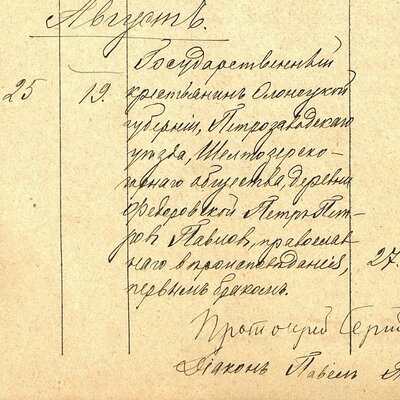 Августъ.
25 19. Государственный
крестьянинъ Олонецкой
губерніи, Петрозаводскаго
уѣзда, Шелтозерско-
горнаго общества, деревни
Федоровской Петръ Пет-
ровъ Павловъ, православ-
наго вѣроисповѣданія, 27.
первымъ бракомъ.
Протоіерей
Діаконъ Павелъ